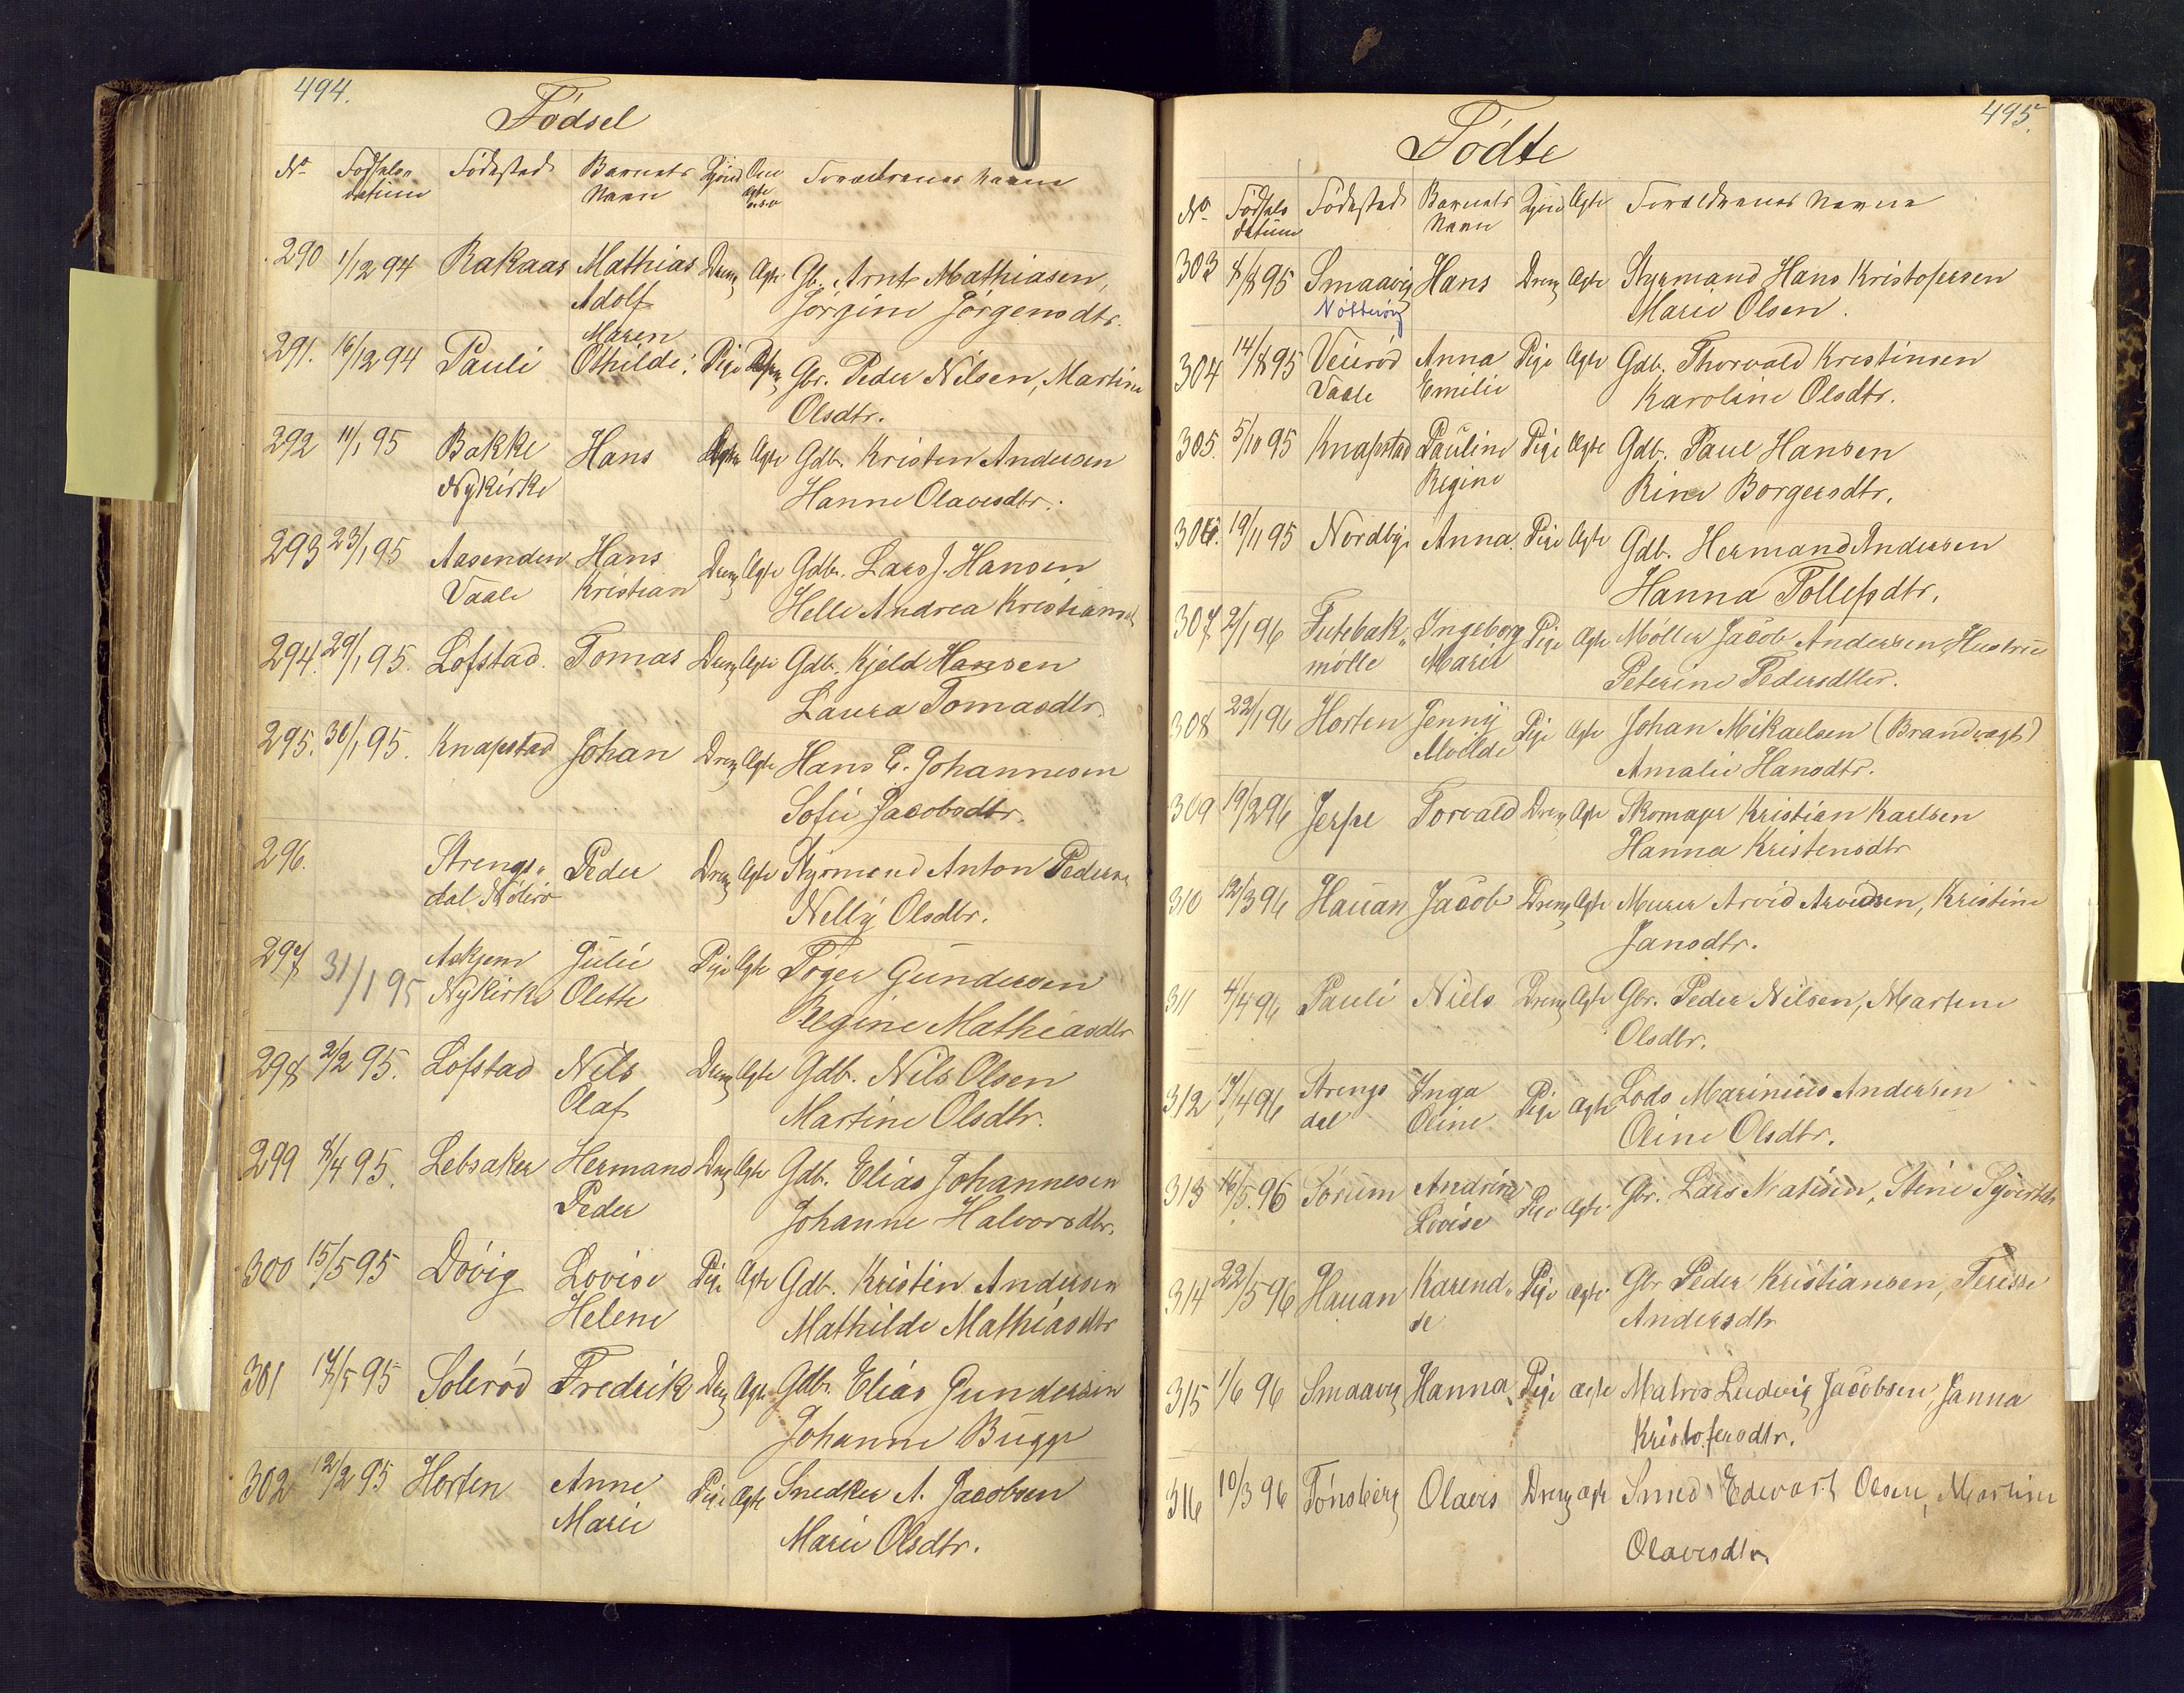 494.
Födsel
No Fødsels- datum Fødested Barnets Navn Kjøn Om ægte Forældrenes Navne
290 1/12 94 Rakaas Mathias Dreng Ægte Gb. Arnt Mathiasen,
Adolf Jörgine Jörgensdtr.
Maren
291. 16/12 94 Pauli Othilde: Pige Ægte Gbr. Peder Nilsen, Martine
Olsdtr.
292 11/1 95 Bakke Hans Ægte Gdb. Kristen Andersen
Nykirke Hanne Olavesdtr.
293 23/1 95 Aasenden Hans Dreng Ægte Gdbr. Lars J. Hansen
Vaale Kristian Helle Andrea Kristians
294. 29/1 95. Lofstad. Tomas Dreng Ægte Gdb. Kjeld Hansen
Laura Tomasdtr.
295. 30/1 95. Knapstad Johan Dreng Ægte Hans E. Johannesen
Sofie Jacobsdtr.
296. Strengs„ Peder Dreng Ægte Styrmand Anton Pedersen
dal Nölirö Nelly Olsdtr.
297 31/1 95 Askjem Julie Pige Ægte Töger Gundersen
Nykirke Olette Regine Mathiasdtr
298 2/2 95. Lofstad Nils Dreng Ægte Gdb. Nils Olsen
Olaf Martine Olsdtr.
299 8/4 95. Lebsaker Hermans Dreng Ægte Gdb. Elias Johannesen
Peder Johanne Halvorsdtr.
300 15/5 95 Dövig Lovise Pige Ægte Gdb. Kristin Andersen
Helene Mathilde Mathiasdtr
301 17/5 95 Solerød Fredrik Dreng Ægte Gdbr. Elias Gundersen
Johanne Bugge
302 12/2 95 Horten Anne Pige Ægte Snedker A. Jacobsen
Marie Marie Olsdtr.
495.
Födte
No Fødsels datum Fødested Barnets Navn Kjøn Ægte Forældrenes Navne
303 8/8 95 Smaavig Hans Dreng Ægte Styrmand Hans Kristofersen
Nøtterøy Marie Olsen.
304 14/8 95 Veierød Anna Pige Ægte Gdb. Thorvald Kristinsen
Vaale Emilie Karoline Olsdtr.
305. 5/10 95 Knapstad Pauline Pige Ægte Gdb. Paul Hansen
Regine Rine Borgersdtr.
306. 19/11 95 Nordby. Anna. Pige Ægte Gdb. Hermand Andersen
Hanna Tollefsdtr.
307. 2/1 96 Futebak„ Ingeborg Pige Ægte Möller Jacob Andersen Hustrue
mölle Marie Peterine Pedersdtter.
308 22/1 96 Horten Jenny Pige Ægte Johan Mikaelsen (Brandvagt)
Alvilde Amalie Hansdtr.
309 19/2 96 Jerpe Torvald Dreng Ægte Skomager Kristian Karlsen
Hanna Kristensdtr
310 12/3 96 Hauan Jacob Dreng Ægte Murer Arvid Arvidsen, Kristine
Jansdtr.
311 4/4 96 Pauli Niels Dreng Ægte Gbr. Peder Nilsen, Martine
Olsdtr.
312 7/4 96 Strengs Inga Pige Ægte Lods Marinius Andersen
dal Oline Oline Olsdtr.
313 16/5. 96 Sörum Andrine Pige Ægte. Gbr. Lars Matisen, Stine Syvertsdtr
Lovise
314 22/5 96 Hauan Karend„ Pige ægte. Gbr Peder Kristiansen, Terisse
se Andersdtr
315 1/6 96 Smaavig Hanna Pige ægte Matros Ludvig Jacobsen, Janna
Kristofersdtr.
316 10/3 96 Tönsberg Olaves Dreng ægte Smed Edevart Olsen, Martine
Olavesdtr.